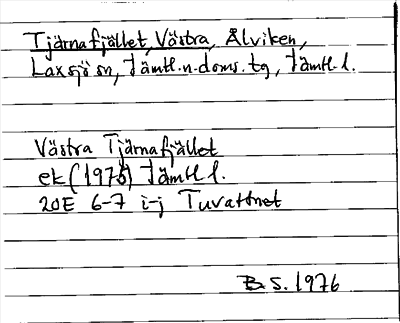 Tjärnafjället, Västra, Ålviken,
Laxsjö sn, Jämtl.n.doms.tg, Jämtl.l.
Västra Tjärnafjället
ek (1975) Jämtl l.
20E 6-7 i-j Tuvattnet
B.S. 1976